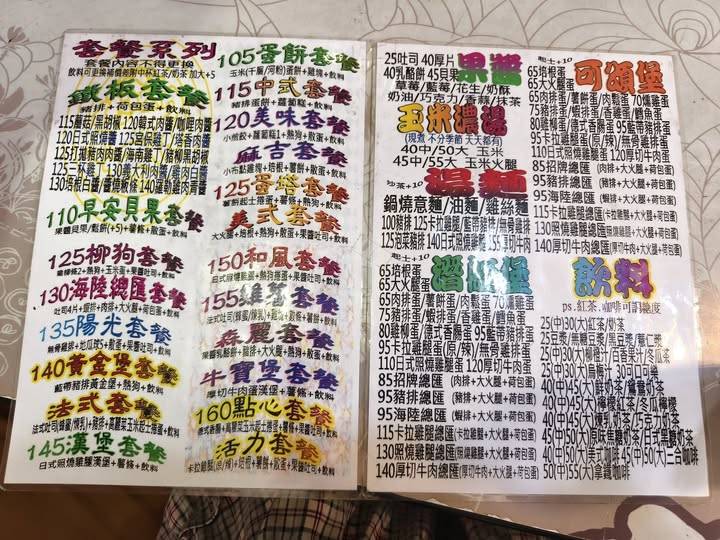 套餐系列
套餐內容不得更換
飲料可更換補價差附中杯紅茶/奶茶 加大+5
鐵板套餐
豬排+荷包蛋+飲料
115蘑菇/黑胡椒 120韓式肉醬/咖哩肉醬
120日式照燒 125宮保雞丁/塔香肉醬
125打拋豬肉肉醬/海南雞丁/豬柳黑胡椒
125三杯雞丁 130義大利肉醬/雞肉白醬
130培根白醬/醬燒軟絲 140
110早安貝果套餐
果醬貝果/鬆餅(+5)+薯條+散蛋+飲料
125柳狗套餐
130海陸總匯套餐
吐司4片+
135陽光套餐
無骨雞腿+地瓜球5+散蛋+果醬吐司+飲料
140黃金堡套餐
藍帶豬排黃金堡+熱狗+飲料
法式套餐
145漢堡套餐
日式照燒雞腿漢堡+薯條+飲料
105蛋餅套餐
玉米(干層/河粉)蛋餅+雞塊+飲料
115中式套餐
豬排蛋餅+蘿蔔糕+飲料
120美味套餐
小煎餃+蘿蔔糕+熱狗+散蛋+飲料
麻吉套餐
125蛋塔套餐
美式套餐
大火腿+培根+薯條+散蛋+果醬吐司+飲料
150和風套餐
155維葛套餐
森麗套餐
牛寶堡套餐
厚切牛肉蛋漢堡+薯條+飲料
160點心套餐
活力套餐
卡拉雞腿(原/辣)+培根+薯餅+散蛋+果醬吐司+飲料
25吐司 40厚片
40乳酪餅 45貝果
果醬
草莓/藍莓/花生/奶酥
奶油/巧克力/香蒜/抹茶
玉米濃湯
(現煮 不分季節 天天都有)
40中 50大 玉米
45中/55大 玉米火腿
沙茶+10
湯麵
鍋燒意麵/油麵/雞絲麵
100豬排 125卡拉雞腿/藍帶豬排/無骨雞排
125泡菜豬排 140日式照燒雞腿 155牛肉
起士+10
潛艇堡
65培根蛋
65大火腿蛋
65肉排蛋/薯餅蛋/肉鬆蛋 70燻雞蛋
65豬排蛋/香雞蛋/雞塊蛋/鱈魚蛋
80雞柳蛋/德式香腸蛋 95藍帶豬排蛋
95卡拉雞腿蛋(原/辣)/無骨雞排蛋
110日式照燒雞腿蛋 120厚切牛肉蛋
85招牌總匯 (肉排+大火腿+荷包蛋)
95豬排總匯 (豬排+大火腿+荷包蛋)
95海陸總匯 (蝦排+大火腿+荷包蛋)
115卡拉雞腿總匯(卡拉雞腿+大火腿+荷包蛋)
130照燒雞腿總匯(照燒雞腿+大火腿+荷包蛋)
140厚切牛肉總匯(厚切牛肉+大火腿+荷包蛋)
起士+10
可頌堡
65培根蛋
65大火腿蛋
65肉排蛋/薯餅蛋/肉鬆蛋 70燻雞蛋
65豬排蛋/香雞蛋/雞塊蛋/鱈魚蛋
80雞柳蛋/德式香腸蛋 95藍帶豬排蛋
95卡拉雞腿蛋(原/辣)/無骨雞排蛋
110日式照燒雞腿蛋 120厚切牛肉蛋
85招牌總匯 (肉排+大火腿+荷包蛋)
95豬排總匯 (豬排+大火腿+荷包蛋)
95海陸總匯 (蝦排+大火腿+荷包蛋)
115卡拉雞腿總匯(卡拉雞腿+大火腿+荷包蛋)
130照燒雞腿總匯(照燒雞腿+大火腿+荷包蛋)
140厚切牛肉總匯(厚切牛肉+大火腿+荷包蛋)
飲料
ps.紅茶.咖啡可調甜度
25(中)30(大)紅茶/奶茶
25豆漿/黑糖豆漿/黑豆漿/薏仁漿
25(中)30(大)柳橙汁/百香果汁/冬瓜茶
25(中)30(大)烏梅汁 30可口可樂
40(中)45(大)鮮奶茶/鴛鴦奶茶
40(中)45(大)檸檬紅茶/冬瓜檸檬
40(中)45(大)煉乳奶茶/巧克力奶茶
45(中)50(大)原味焦糖奶茶/日式黑糖奶茶
40(中)45(大)美式咖啡 45(中)50(大)三合咖啡
50(中)55(大)拿鐵咖啡